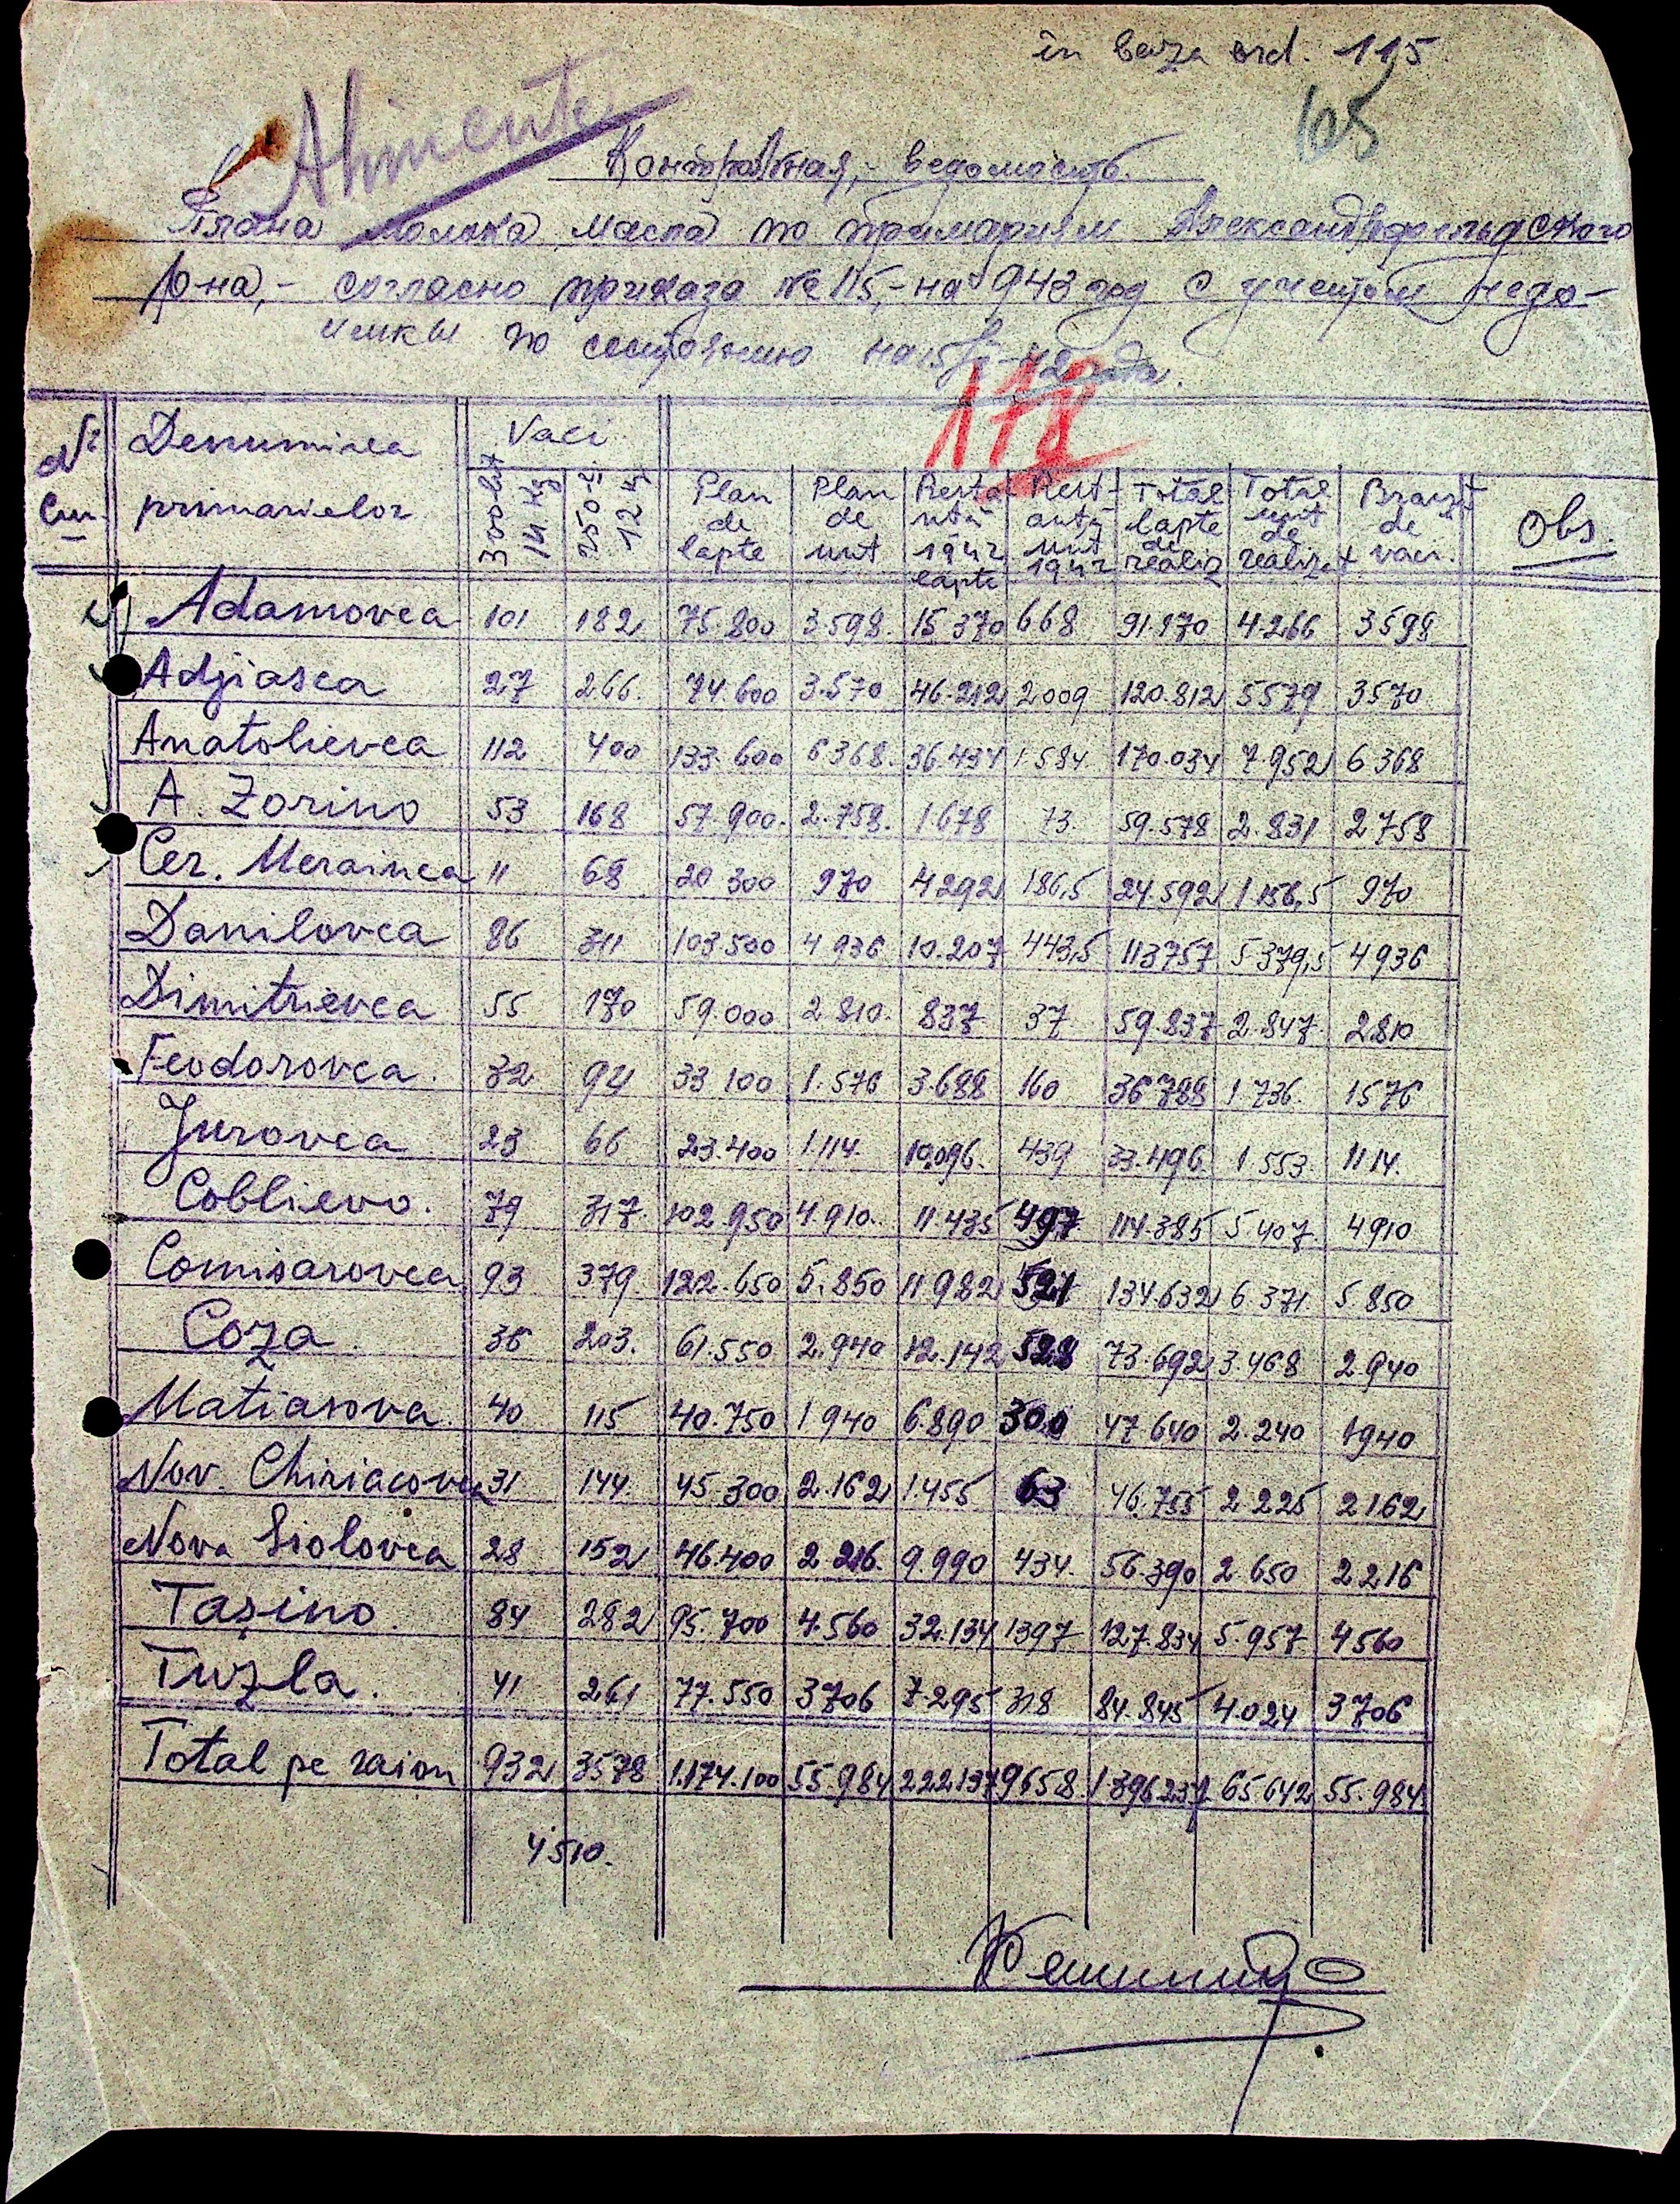 în baza ord. 115.
105
Alimente
Контрольная,- ведомость.
Плана молока масла по примариям Александрфельдского
р-на,- согласно приказа № 115,- на 943 год с учетом недо-
имки по состоянию на
178
Nr Denumirea Vaci
Cur. primarielor 300 lit 14 kg 250 l. 12 kg Plan de lapte Plan de unt Restantă 1942 lapte Restantă unt 1942 Total lapte de realiz Total unt de realizat Branză de vaci. Obs.
Adamovca 101 182 75.800 3.598. 15370 668 91.170 4.266 3598
Adjiasca 27 266. 74.600 3.570 46.212 2009 120.812 5579 3570
Anatolievca 112 400 133.600 6.368. 36.434 1.584 170.034 7.952 6368
A. Zorino 53 168 57.900. 2.758. 1.678 73. 59.578 2.831 2758
Cer. Merainca 11 68 20 300 970 4292 186,5 24.592 1156,5 970
Danilovca 86 311 103.500 4 936 10.207 443,5 113757 5.379,5 4936
Dimitrievca 55 170 59.000 2.810. 837 37 59.837 2.847. 2810
Feodorovca. 32 94 33 100 1.576 3.688 160 36788 1736. 1576
Jurovca 23 66 23.400 1.114. 10.096. 439 33.496 1.553 1114.
Coblievo. 79 317. 102.950 4.910. 11.435 497 114.385 5.407. 4910
Comisarovca 93 379. 122.650 5.850 11982 521 134.632 6.371. 5.850
Coza. 36 203. 61.550 2.940 12.142 528 73.692 3.468 2.940
Matiasova. 40 115 40.750 1940 6.890 300 47.640 2.240 1940
Nov. Chiriacovca 31 144 45.300 2.162 1.455 63 46.755 2.225 2162
Nova Siolovca 28 152 46.400 2.216. 9.990 434. 56.390 2.650 2216
Tașino. 84 282 95.700 4.560 32.134 1397 127.834 5.957 4560
Tuzla. 41 261 77.550 3706 7.295 318 84.845 4.024 3706
Total pe raion 932 3578 1.174.100 55.984 222137 9658 1.396237 65.642 55.984
4510.